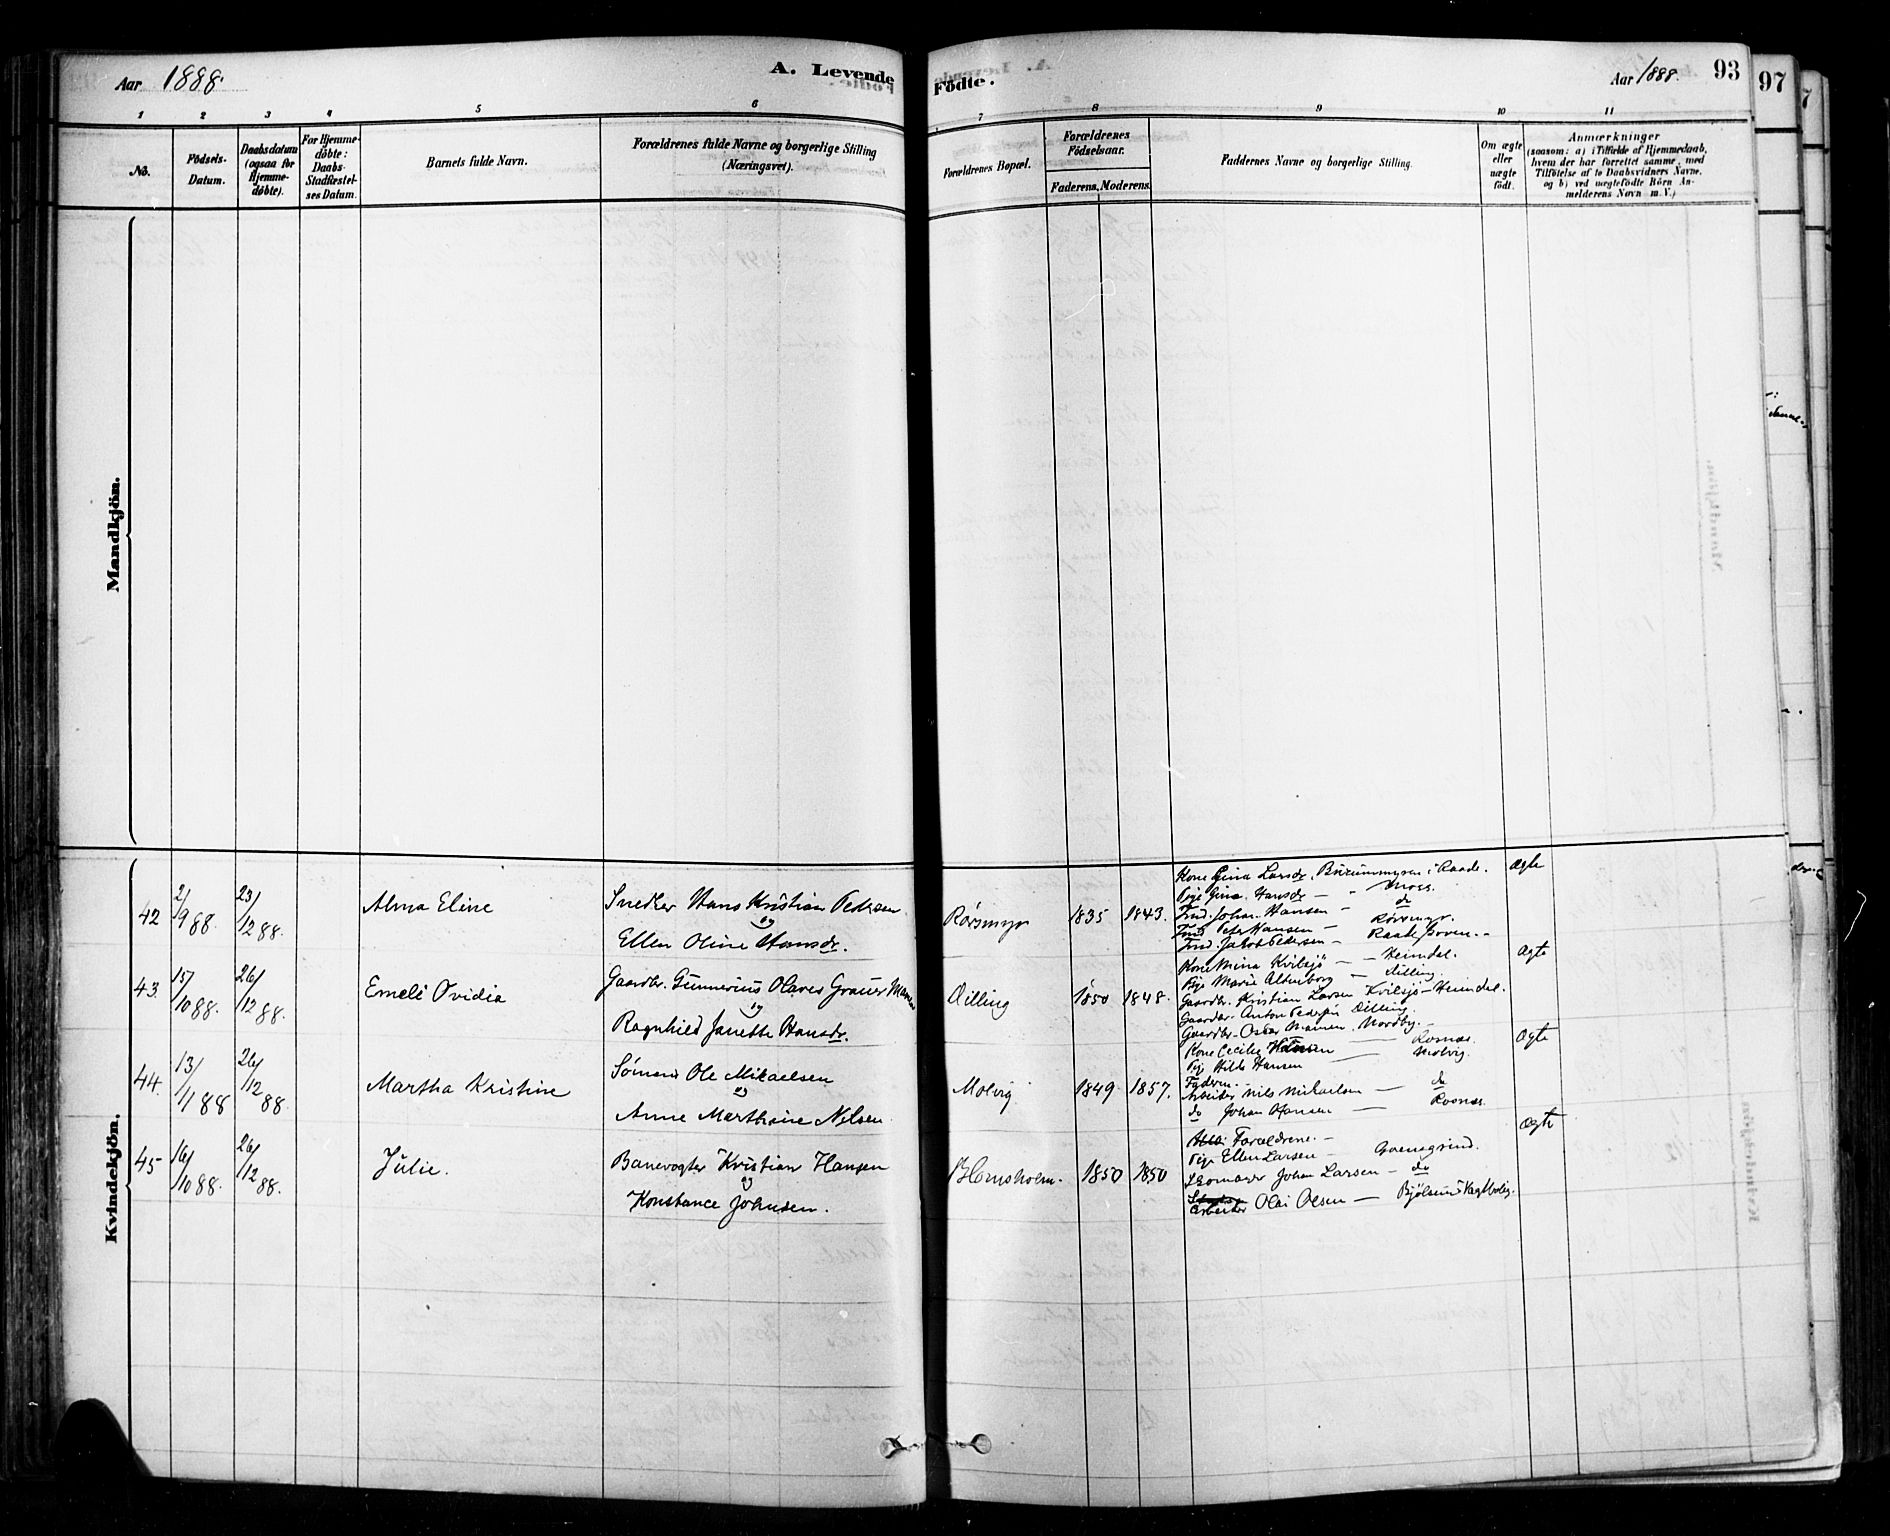 Aar 1888.
A. Levende Födte.
Aar 1888.
93
97
1 2 3 4 5 6 7 8 9 10 11
No.
Födsels-
Datum.
Daabsdatum
(ogsaa for
Hjemme-
döbte).
For Hjemme-
döbte:
Daabs-
Stadfæstel-
ses Datum.
Barnets fulde Navn.
Forældrenes fulde Navne og borgerlige Stilling
(Næringsvei).
Forældrenes Bopæl.
Forældrenes
Födselsaar.
Faderens. Moderens.
Faddernes Navne og borgerlige Stilling.
Om ægte
eller
uægte
födt.
Anmærkninger
(saasom: a) i Tilfælde af Hjemmedaab,
hvem der har forrettet samme, med
Tilföielse af to Daabsvidners Navne,
og b) ved uægtefödte Börn An-
melderens Navn m.V.)
Mandkjön.
Kvindekjön.
42 2/9 88. 23/12 88. Alma Eline
Snedker Hans Kristian Pedersen
og
Ellen Oline Hansdr.
Rørsmyr 1835 1843.
Kone Gina Larsdr. i Raade.
Pige Gina Hansdr — " Moss.
Fmd. Johan Hansen — do
Fmd. Peter Hansen — Rørsmyr.
Fmd. Jakob Pedersen —
Ægte
43. 15/10 88. 26/12 88. Emeli Ovidia
Gaardbr. Gunnerius Olaves Grauer
og
Ragnhild Janette Hansdr.
Dilling 1850 1848.
Kone Mina Kvilesjö — Heimdal.
Pige Marie Altenborg — Dilling.
Gaardbr. Kristian Larsen Kvilesjö — Heimdal.
Gaardbr. Anton Pedersen Dilling.
Gaardbr. Oscar Nordby.
Ægte
44. 13/11 88 26/12 88. Martha Kristine
Sømand Ole Mikaelsen
og
Anne Marthine Nilsen
Molvig 1849 1857.
Kone Cecilie — Rosnæs.
Pige Hilda Hansen — Molvig.
Faderen.
Arbeider Nils Mikaelsen — do
do Johan Hansen — Rosnæs.
Ægte
45 16/10 88. 26/12 88. Julie.
Banevogter Kristian Hansen
og
Konstance Johnsen.
Blomsholm. 1850 1850
Forældrene. —
Pige Ellen Larsen — Grønsgrind.
Skomager Johan Larsen — do
Arbeider Olai Olsen — Vagtbolig.
Ægte